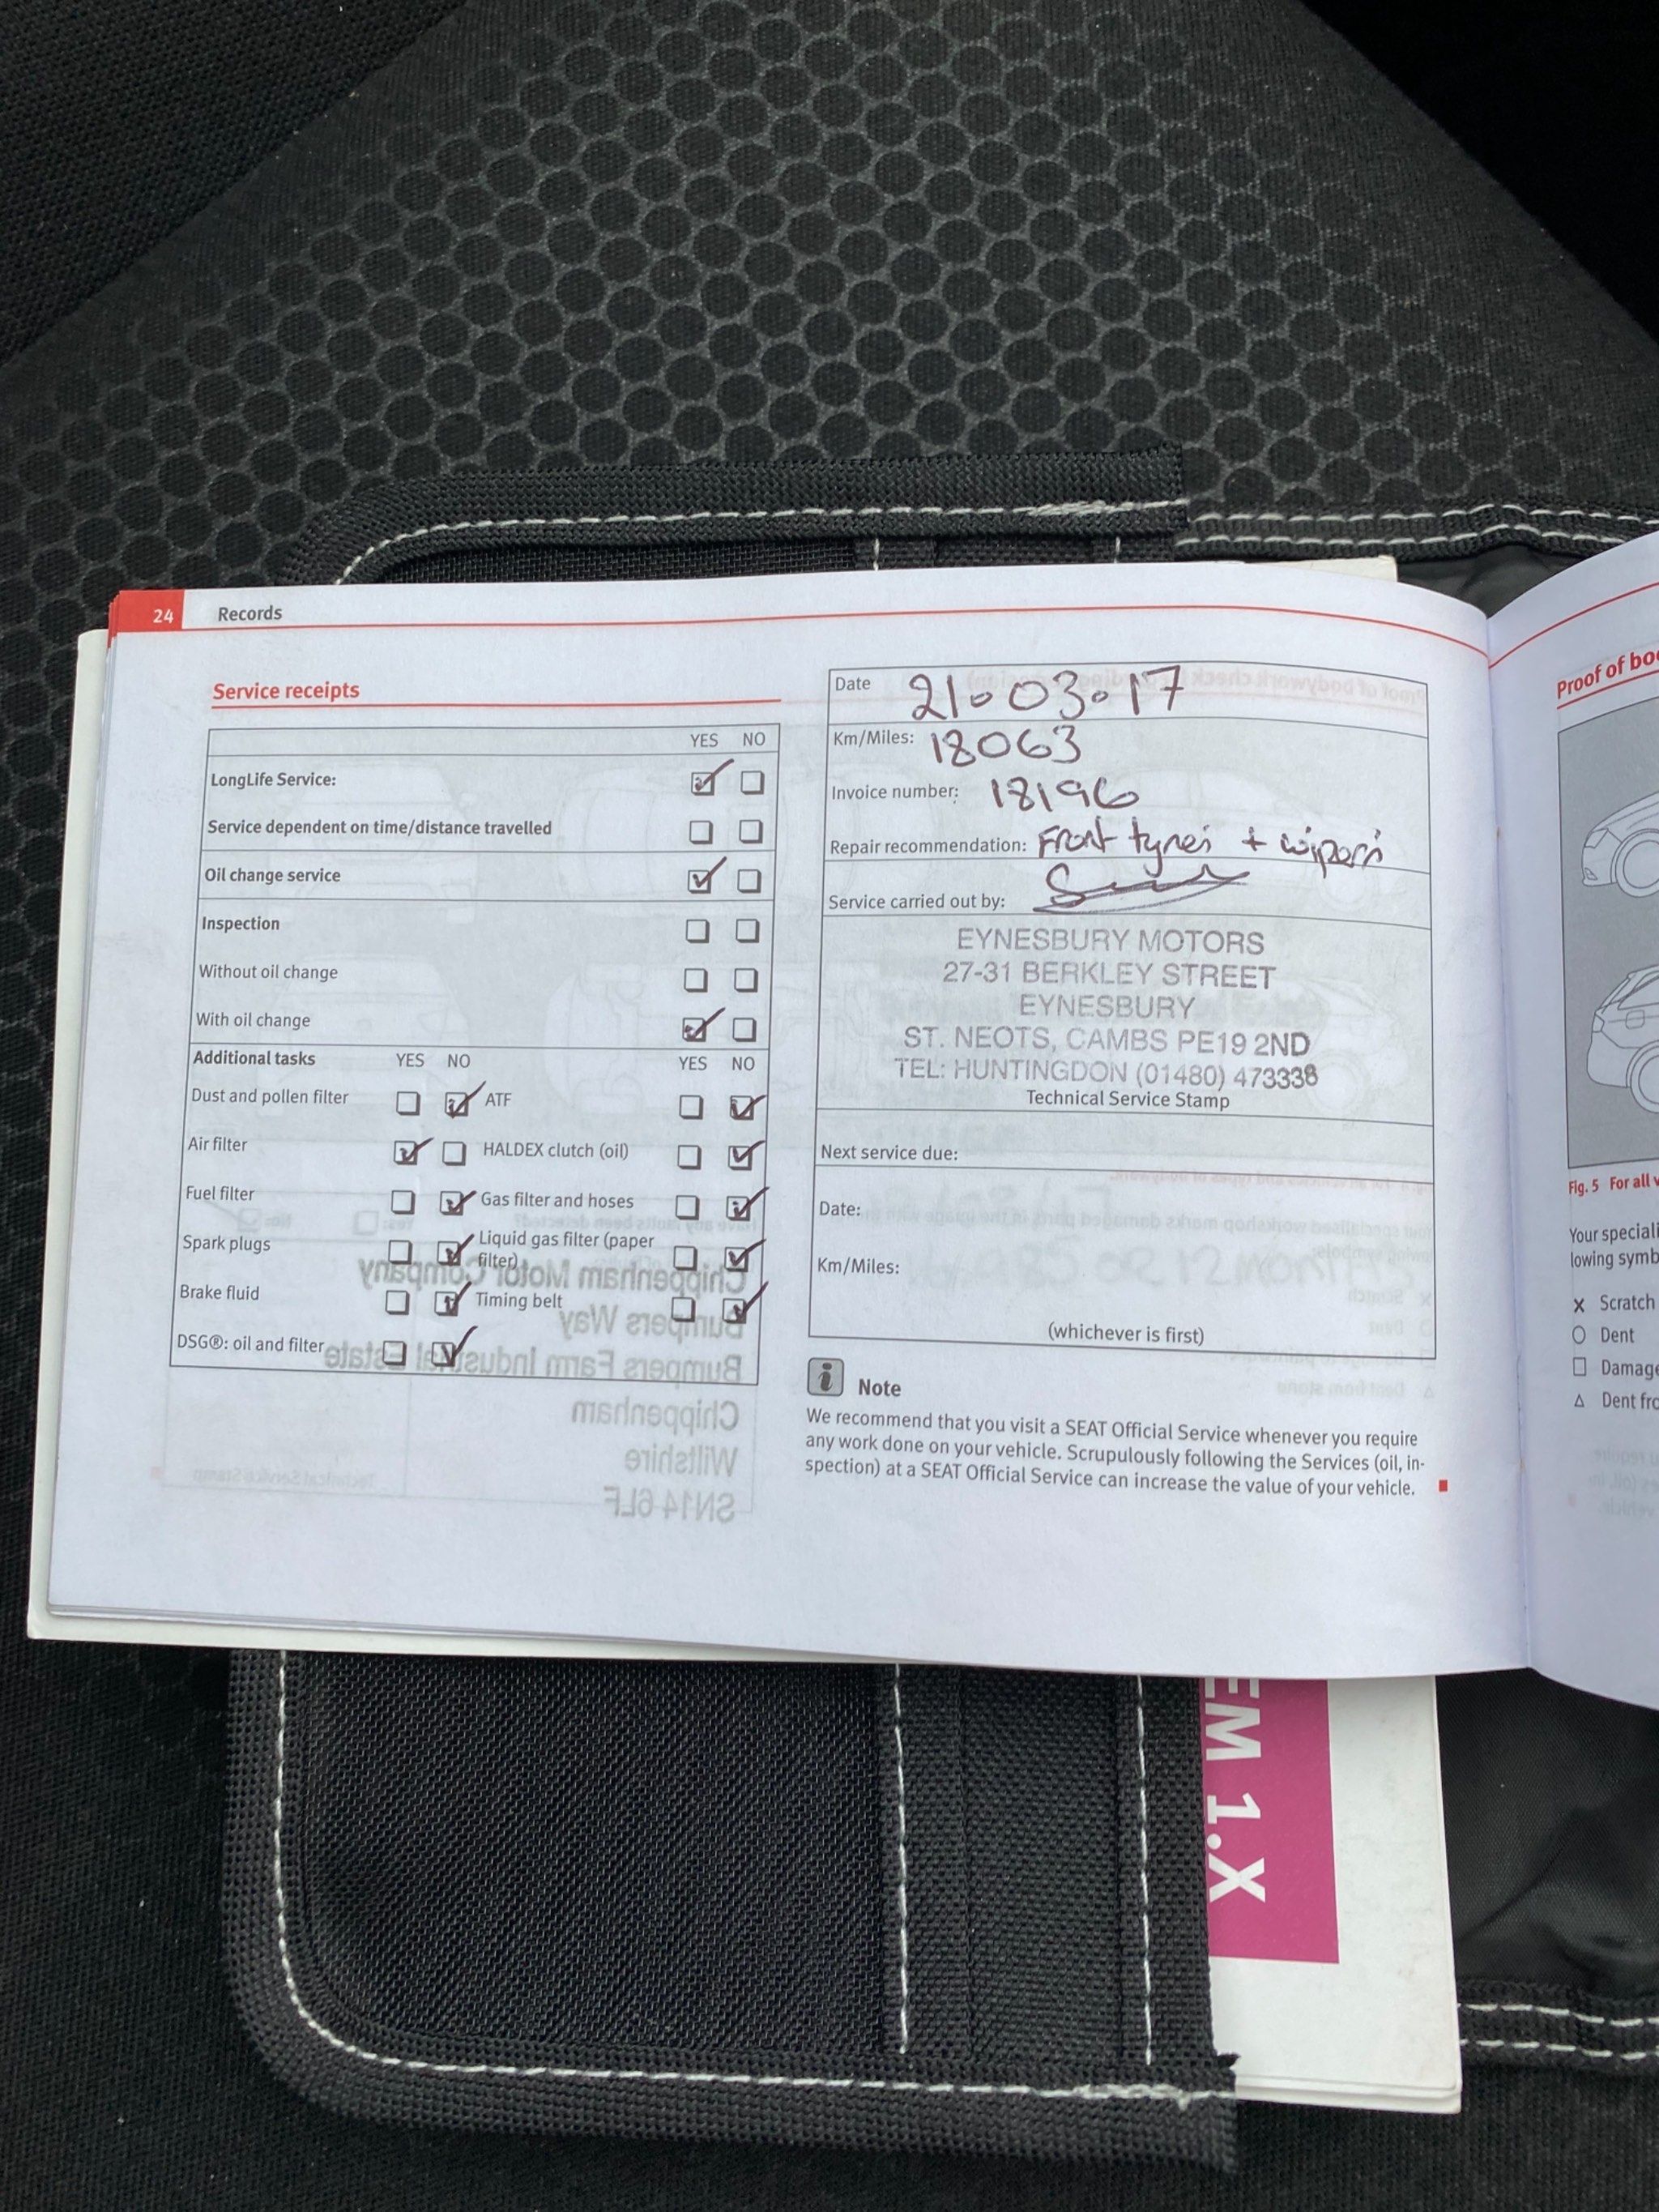 24 Records
Service receipts
YES NO
LongLife Service:
Service dependent on time/distance travelled
Oil change service
Inspection
Without oil change
With oil change
Additional tasks YES NO YES NO
Dust and pollen filter ATF
Air filter HALDEX clutch (oil)
Fuel filter Gas filter and hoses
Spark plugs Liquid gas filter (paper
filter)
Brake fluid Timing belt
DSG®: oil and filter
Chippenham Motor Company
Bumpers Way
Bumpers Farm Industrial Estate
Chippenham
Wiltshire
SN14 6LF
Technical Service Stamp
Date 21.03.17
Km/Miles: 18063
Invoice number: 18196
Repair recommendation: Front tyres + wipers
Service carried out by:
EYNESBURY MOTORS
27-31 BERKLEY STREET
EYNESBURY
ST. NEOTS, CAMBS PE19 2ND
TEL: HUNTINGDON (01480) 473338
Technical Service Stamp
Next service due:
Date:
Km/Miles:
(whichever is first)
i Note
We recommend that you visit a SEAT Official Service whenever you require
any work done on your vehicle. Scrupulously following the Services (oil, in-
spection) at a SEAT Official Service can increase the value of your vehicle.
Proof of
Fig. 5 For all
Your
lowing
x Scratch
Dent
Dent
EM 1.X